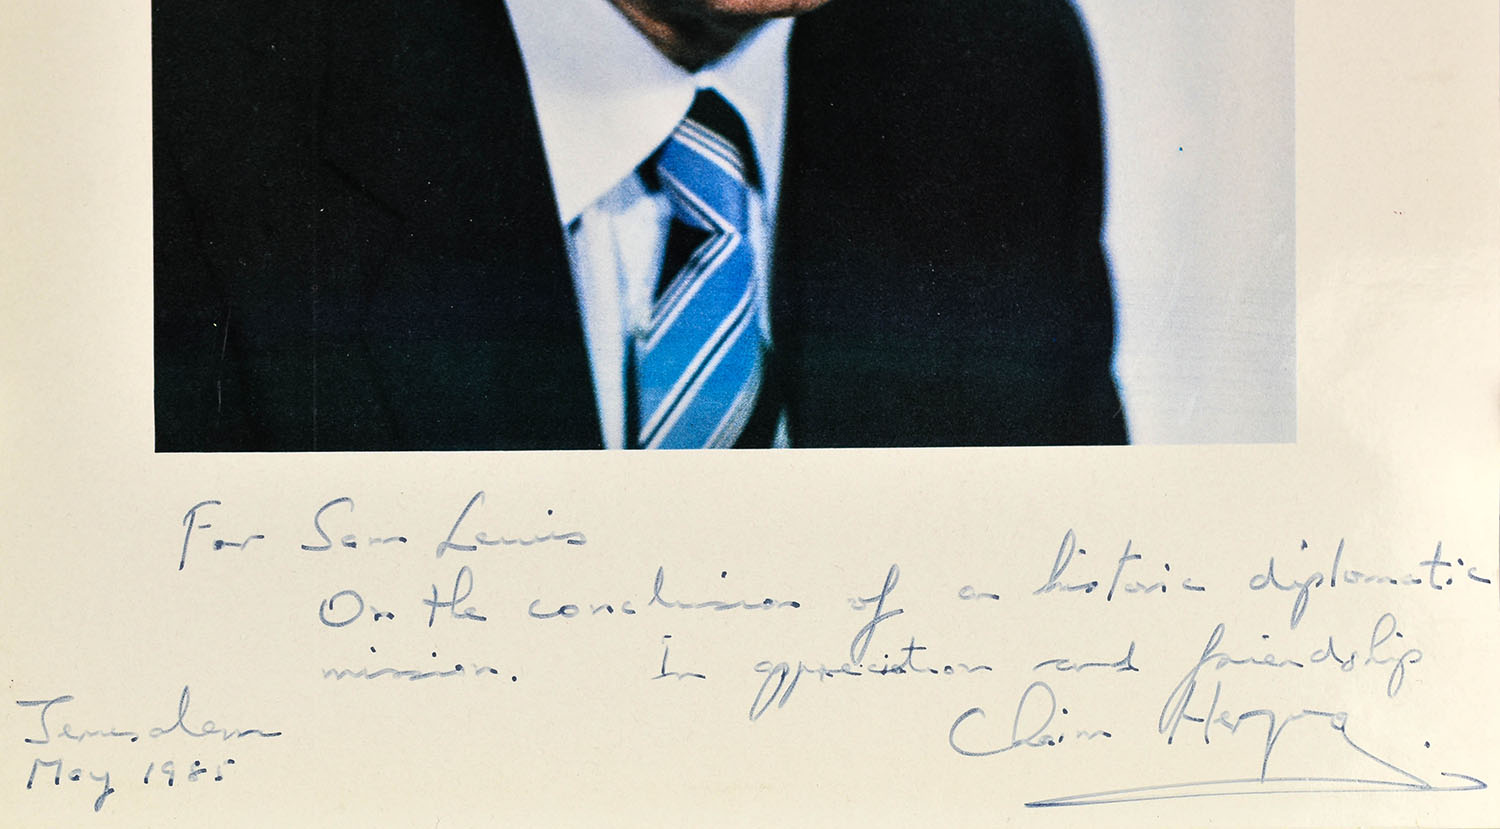 For Sam Lewis
On the conclusion of an historic diplomatic
mission. In appreciation and friendship
Chaim Herzog.
Jerusalem
May 1985